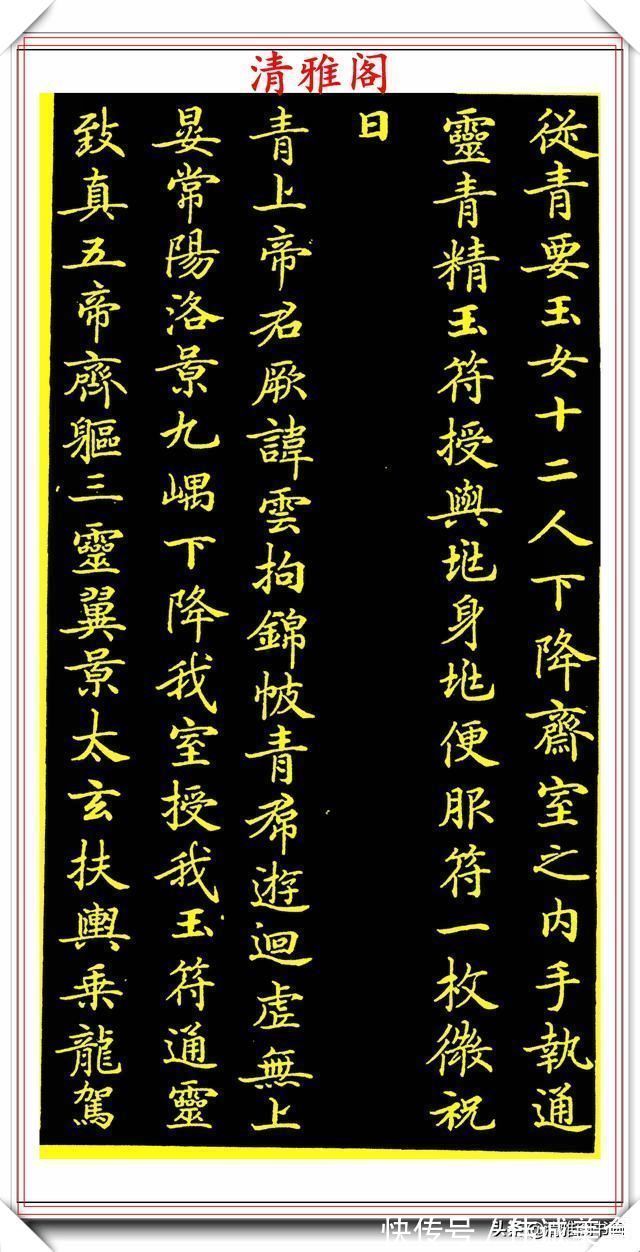 清雅阁
從青要玉女十二人下降齋室之内手執通
靈青精玉符授與兆身兆便服符一枚微祝
曰
青上帝君厥諱雲拘錦帔青帬遊迴虚無上
晏常陽洛景九嵎下降我室授我玉符通靈
致真五帝齊軀三靈翼景太玄扶輿乗龍駕
快传号